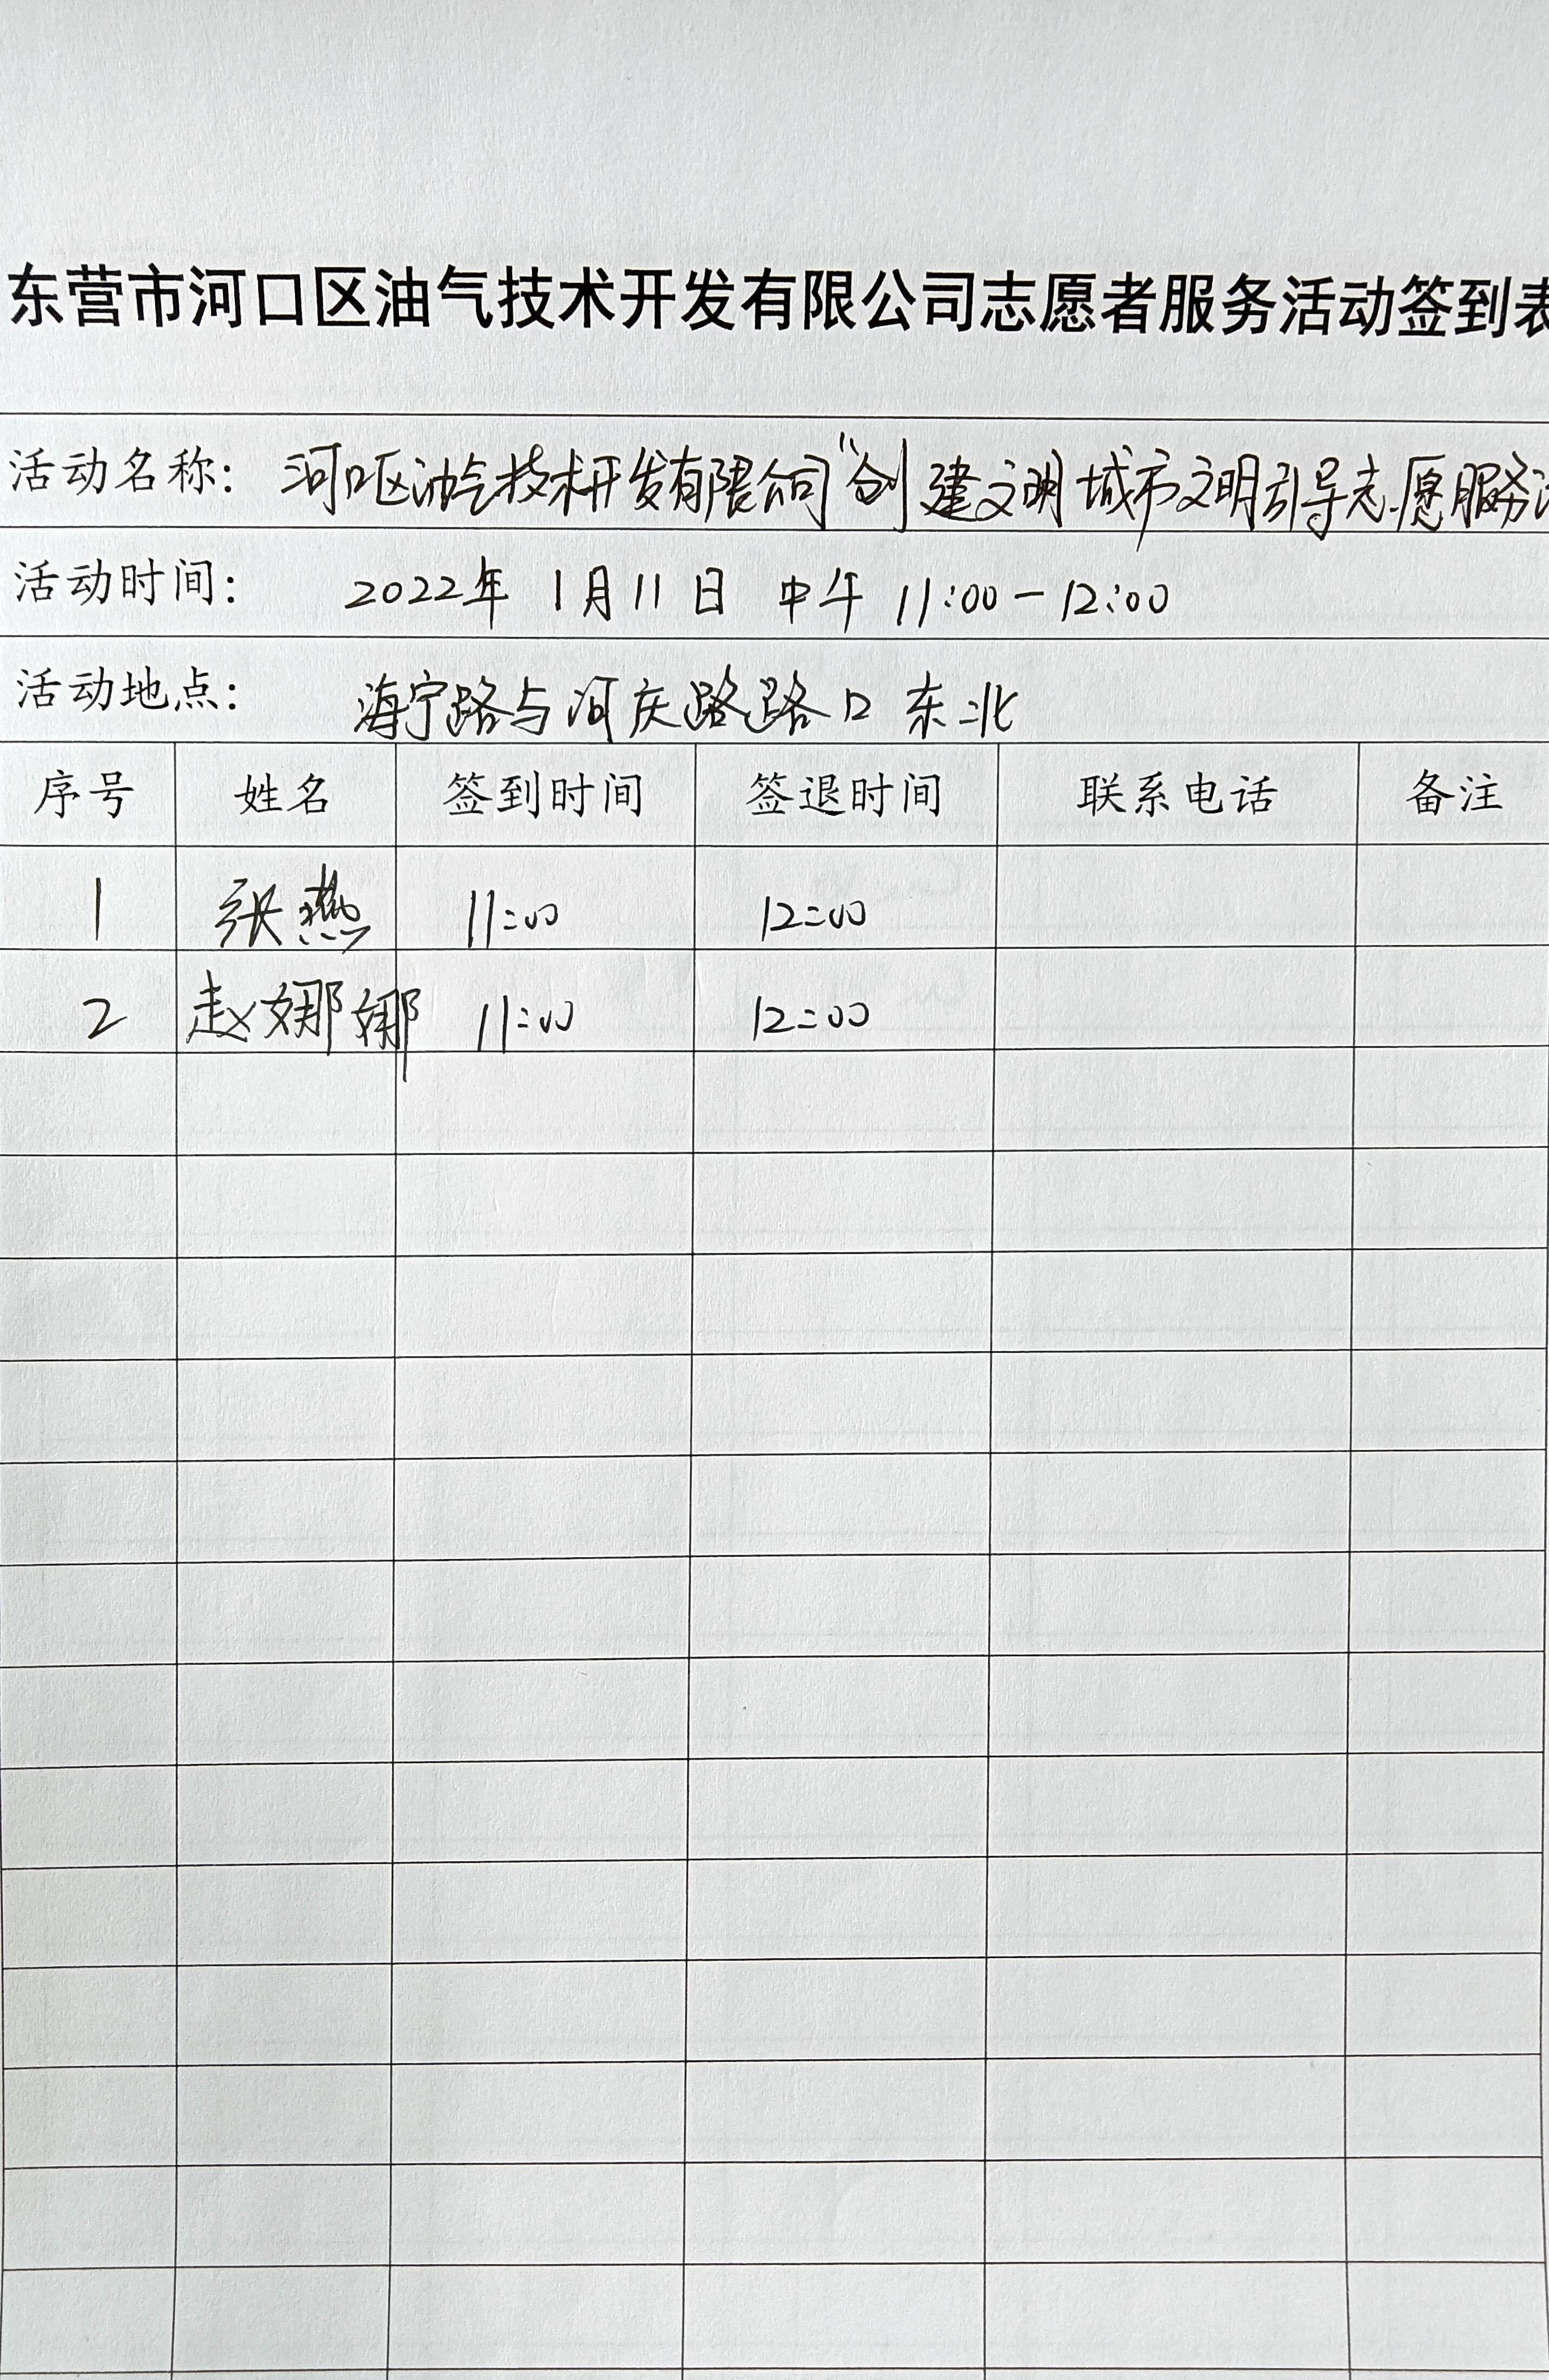 东营市河口区油气技术开发有限公司志愿者服务活动签到表
活动名称: 河口区油气技术开发有限公司"创建文明城市文明引导志愿服务
活动时间: 2022年 1月11日 中午 11:00-12:00
活动地点: 海宁路与河庆路路口东北
序号 姓名 签到时间 签退时间 联系电话 备注
1 张燕 11:00 12:00
2 赵娜娜 11:00 12:00